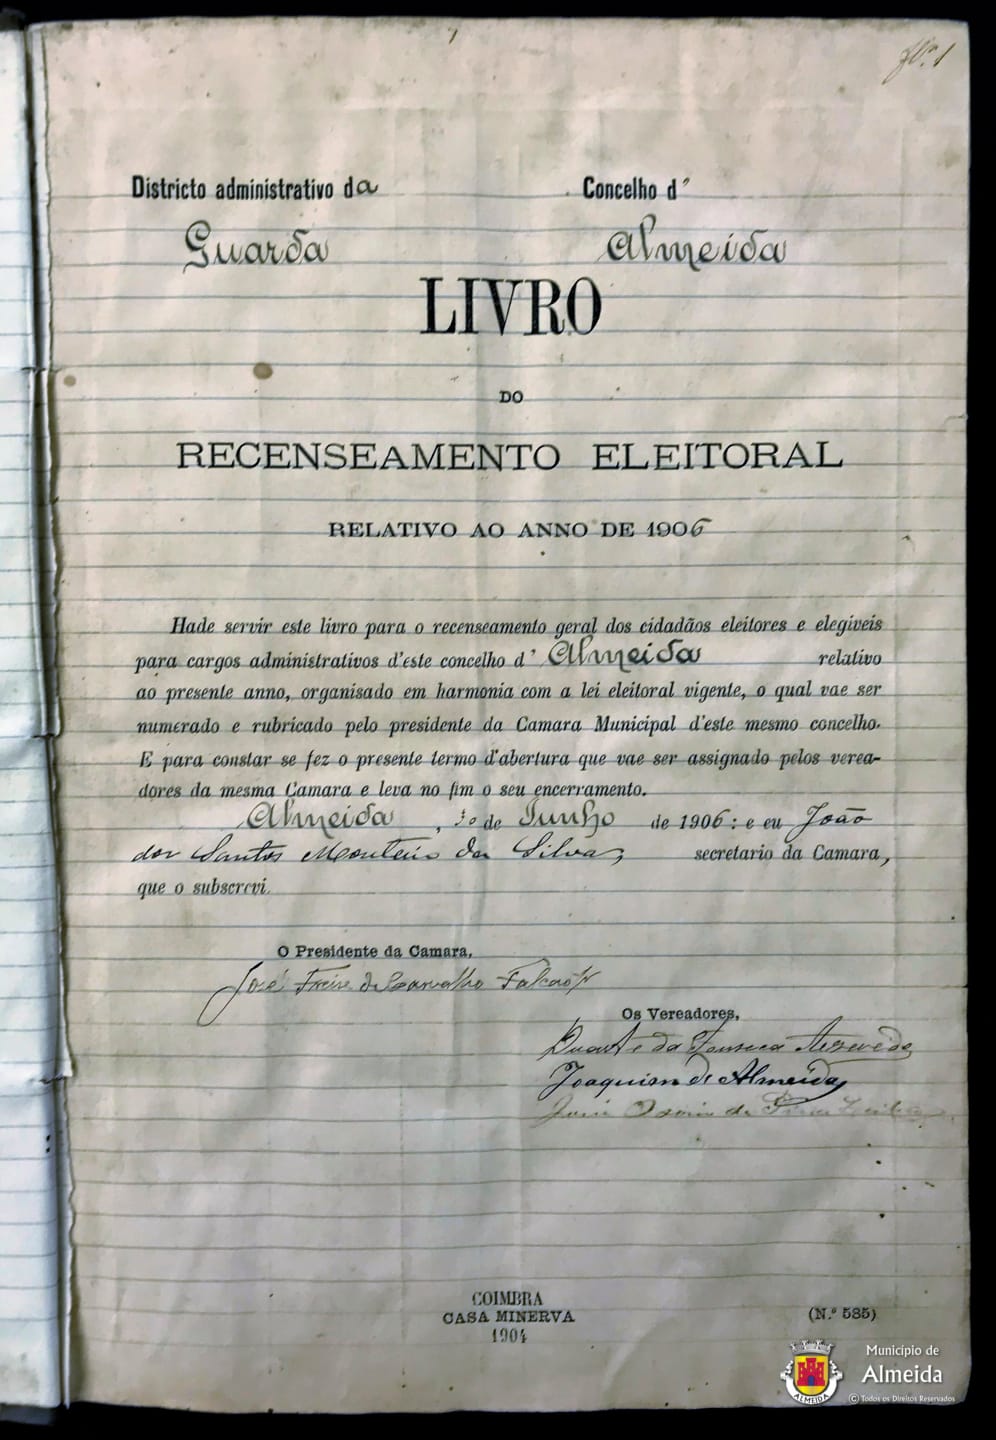 Fl.ª 1
Districto administrativo da
Concelho d'
Guarda
Almeida
LIVRO
DO
RECENSEAMENTO ELEITORAL
RELATIVO AO ANNO DE 1906
Hade servir este livro para o recenseamento geral dos cidadãos eleitores e elegiveis
para cargos administrativos d'este concelho d' Almeida relativo
ao presente anno, organisado em harmonia com a lei eleitoral vigente, o qual vae ser
numerado e rubricado pelo presidente da Camara Municipal d'este mesmo concelho.
E para constar se fez o presente termo d'abertura que vae ser assignado pelos verea-
dores da mesma Camara e leva no fim o seu encerramento.
Almeida, de Junho de 1906: e eu João
dos Santos Monteiro da Silva, secretario da Camara,
que o subscrevi.
O Presidente da Camara,
José Freire de Carvalho Falcão
Os Vereadores,
Duarte da Fonseca Azevedo
Joaquim de Almeida
José Osorio da
COIMBRA
CASA MINERVA
1904
(N.º 585)
ALMEIDA
Município de
Almeida
© Todos os Direitos Reservados